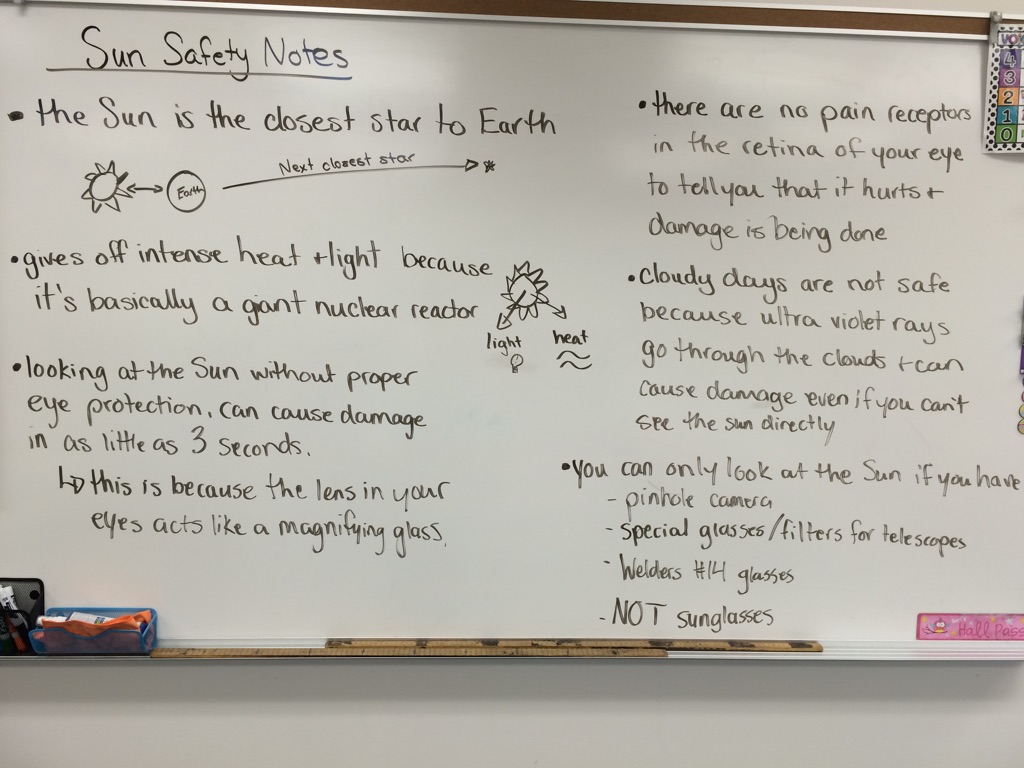 Sun Safety Notes
• the Sun is the closest star to Earth
Earth
Next closest star
• gives off intense heat + light because
it's basically a giant nuclear reactor
light
heat
• looking at the Sun without proper
eye protection, can cause damage
in as little as 3 seconds.
↳ this is because the lens in your
eyes acts like a magnifying glass.
• there are no pain receptors
in the retina of your eye
to tell you that it hurts +
damage is being done
• cloudy days are not safe
because ultra violet rays
go through the clouds + can
cause damage even if you can't
see the sun directly
• you can only look at the Sun if you have
- pinhole camera
- special glasses/filters for telescopes
- Welders #14 glasses
- NOT sunglasses
4
3
2
1
0
Hall Pass